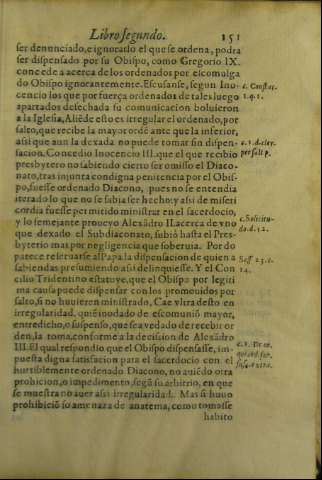 Libro segundo. 151
ser denunciado, e ignorarlo el que se ordena, podra
ser dispensado por su Obispo, como Gregorio IX.
concede a acerca de los ordenados por escomulga
do Obispo ignorantemente. Escusanse, segun Ino-
cencio los que por fuerça ordenados de tales luego
apartados desechada su comunicacion boluieron
a la Iglesia, Aliēde esto es irregular el ordenado, por
salto, que recibe la mayor ordē ante que la inferior,
assi que aun la dexada no puede tomar sin dispen-
sacion. Concedio Inocencio III. que el que recibio
presbytero no sabiendo cierto ser omisso el Diaco-
nato, tras injunta condigna penitencia por el Obis-
po, fuesse ordenado Diacono, pues no se entendia
iterado lo que no se sabia ser hecho: y assi de miseri
cordia fuesse permitido ministrar en el sacerdocio,
y lo semejante proueyo Alexādro II. acerca de vno
que dexado el Subdiaconato, subio hasta el Pres-
byterio mas por negligencia que soberuia. Por do
parece reseruarse al Papa la dispensacion de quien a
sabiendas presumiendo assi delinquiesse. Y el Con
cilio Tridentino estatuye, que el Obispo por legiti
ma causa puede dispensar con los promouidos por
salto, si no huuieren ministrado, Cae vltra desto en
irregularidad, quiē inodado de escomuniō mayor,
entredicho, o suspenso, que sea vedado de recebir or
den, la toma, conforme a la decision de Alexādro
III. El qual respondio que el Obispo dispensasse, im-
puesta digna satisfacion para el sacerdocio con el
hurtiblemente ordenado Diacono, no auiēdo otra
prohicion, o impedimento, segū su arbitrio, en que
se muestra no auer assi irregularidad. Mas si huuo
prohibiciō so amenaza de anatema, como tomasse
habito
1.q.1.
c.1.d.cler.
per salt p.
c. Solicitu-
do.d.52.
Sess 23.c.
14.